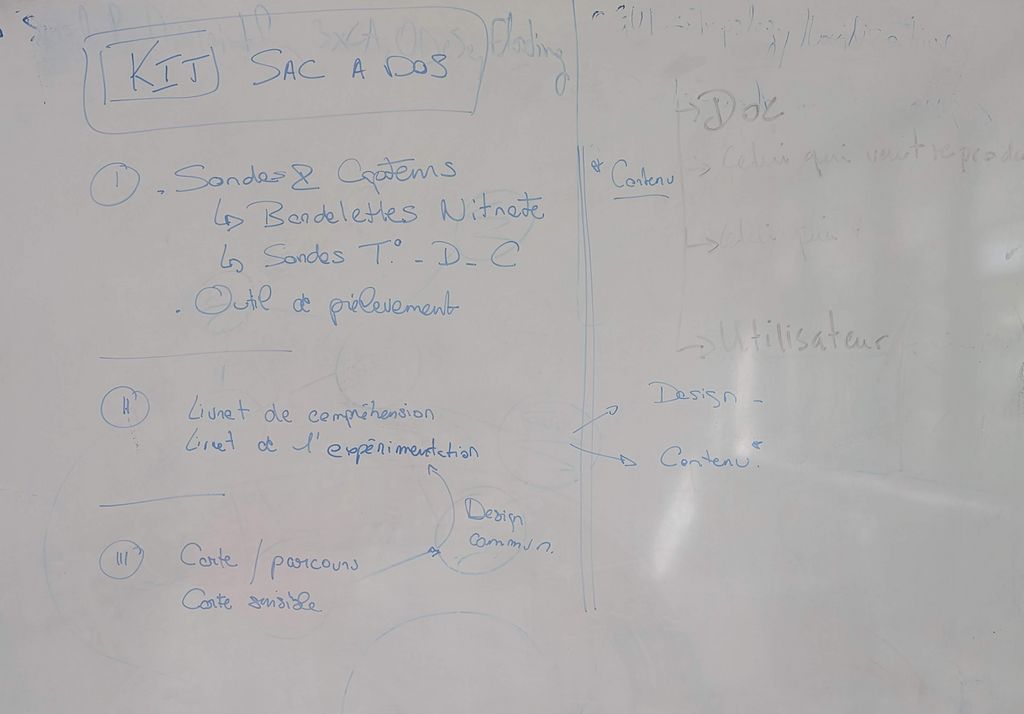 KIT SAC A DOS
I . Sondes & Capteurs
↳ Bandelettes Nitrate
↳ Sondes T.° - D - C
. Outil de prélevement
II Livret de compréhension
Livret de l'expérimentation
III Carte / parcours
Carte sensible
Design
commun.
* Contenu
Design -
Contenu.*
→ Doc
→ Celui qui veut reprodu
→ Celui qui
→ Utilisateur